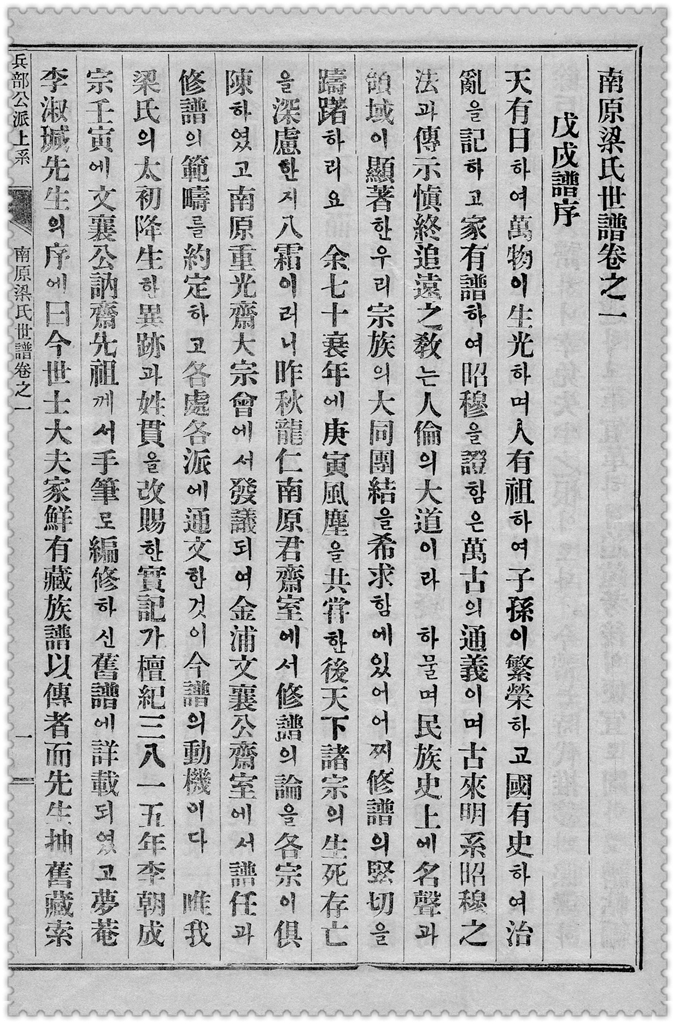 南原梁氏世譜卷之一
戊戌譜序
天有日하여萬物이生光하며人有祖하여子孫이繁榮하고國有史하여治
亂을記하고家有譜하여昭穆을證함은萬古의通義이며古來明系昭穆之
法과傳示愼終追遠之敎는人倫의大道이라 하물며民族史上에名聲과
領域이顯著한우리宗族의大同團結을希求함에있어어찌修譜의堅切을
躊躇하리요 余七十衰年에庚寅風塵을共嘗한後天下諸宗의生死存亡
을深慮한지八霜이러니昨秋龍仁南原君齋室에서修譜의論을各宗이俱
陳하였고南原重光齋大宗會에서發議되여金浦文襄公齋室에서譜任과
修譜의範疇를約定하고各處各派에通文한것이今譜의動機이다 唯我
梁氏의太初降生한異跡과姓貫을改賜한實記가檀紀三八一五年李朝成
宗壬寅에文襄公訥齋先祖께서手筆로編修하신舊譜에詳載되였고夢菴
李淑瑊先生의序에曰今世士大夫家鮮有藏族譜以傳者而先生抽舊藏索
兵部公派上系
南原梁氏世譜卷之一
一